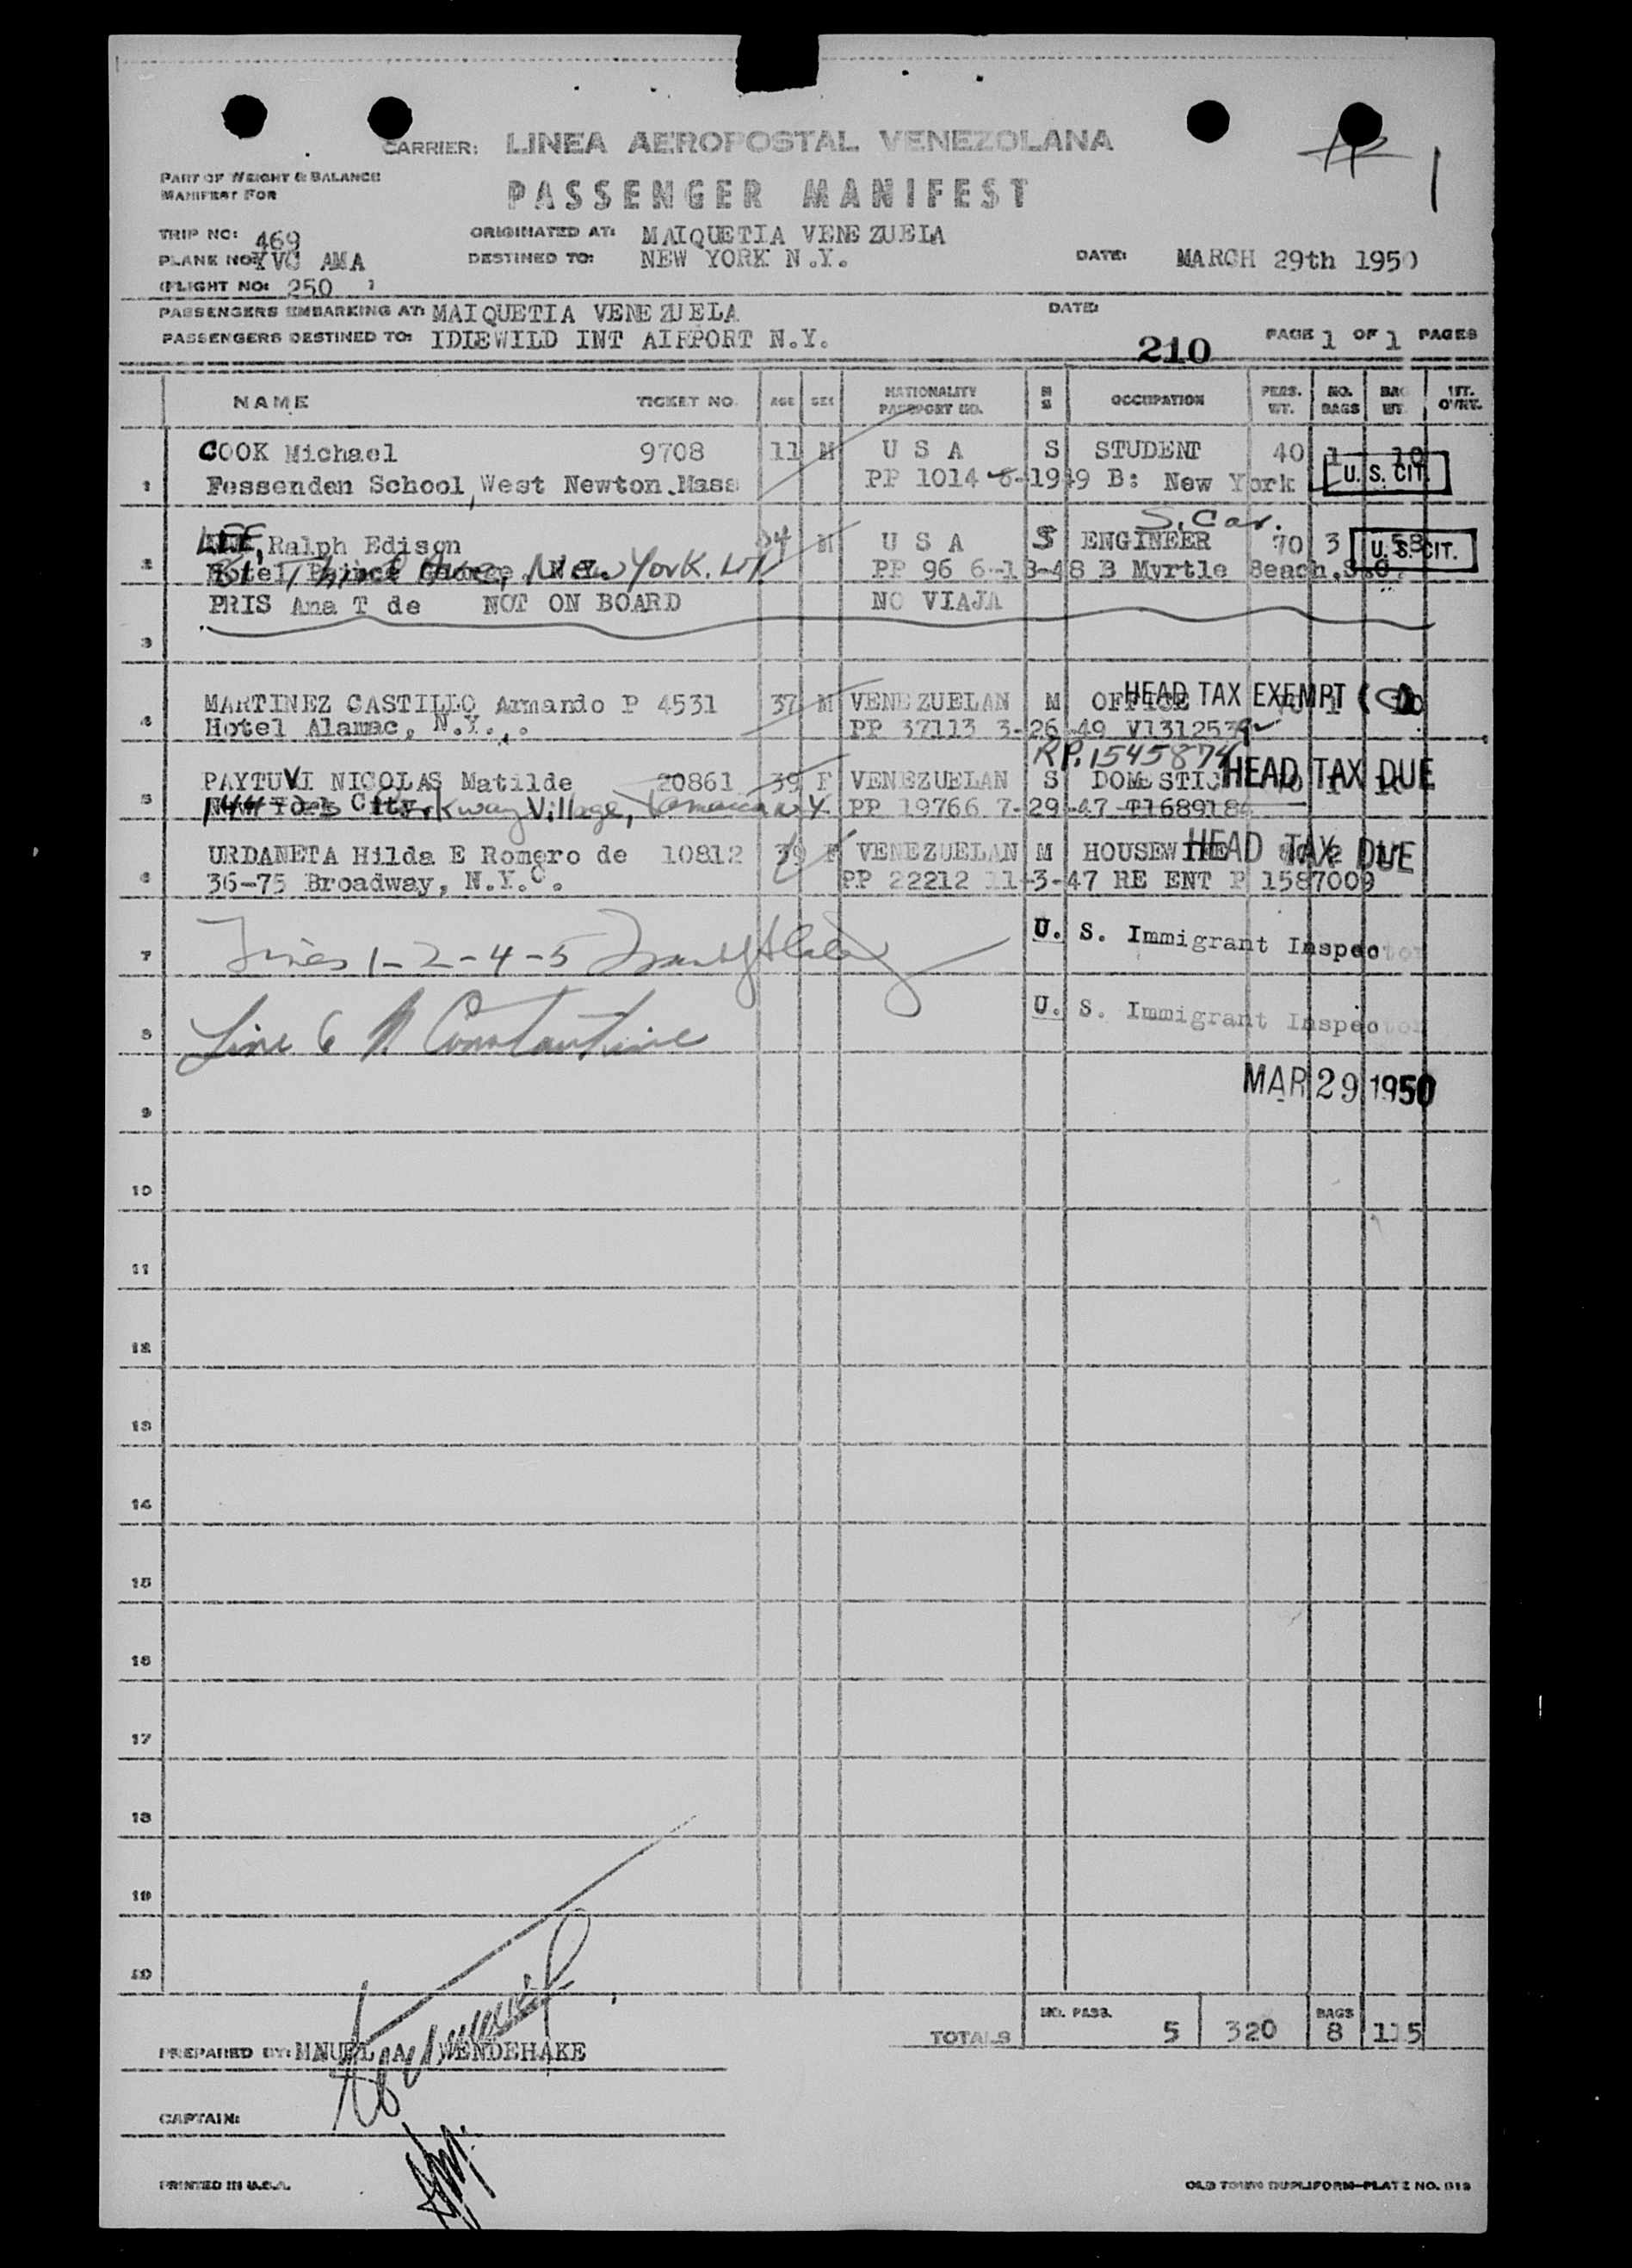 CARRIER: LINEA AEROPOSTAL VENEZOLANA
PART OF WEIGHT & BALANCE
MANIFEST FOR
PASSENGER MANIFEST
1
TRIP NO: 469
ORIGINATED AT: MAIQUETIA VENEZUELA
PLANE NO: YVC AMA
DESTINED TO: NEW YORK N.Y.
DATE: MARCH 29th 1950
FLIGHT NO: 250
PASSENGERS EMBARKING AT: MAIQUETIA VENEZUELA
DATE:
PASSENGERS DESTINED TO: IDIEWILD INT AIRPORT N.Y.
210
PAGE 1 OF 1 PAGES
NAME TICKET NO. AGE SEX NATIONALITY PASSPORT NO. M S OCCUPATION PERS. WT. NO. BAGS BAG WT. WT. OVWT.
COOK Michael 9708 11 M U S A S STUDENT 40 1 10
1 Fessenden School, West Newton.Mass PP 1014 6-1949 B: New York U. S. CIT.
S. Car.
LEE, Ralph Edison 34 M U S A S ENGINEER 70 3 58
2 Hotel Prince George New York. PP 96 6-18-48 B Myrtle Beach.S.C. U. S. CIT.
PRIS Ana T de NOT ON BOARD NO VIAJA
3
MARTINEZ CASTILLO Armando P 4531 37 M VENEZUELAN M OFFICE HEAD TAX EXEMPT
4 Hotel Alamac, N.Y. PP 37113 3-26-49 V1312539
RP.1545874
PAYTUVI NICOLAS Matilde 20861 39 F VENEZUELAN S DOMESTIC HEAD TAX DUE
5 144 Parkway Village, Jamaica N.Y. PP 19766 7-29-47
URDANETA Hilda E Romero de 10812 39 F VENEZUELAN M HOUSEWIFE HEAD TAX DUE
6 36-75 Broadway, N.Y.C. PP 22212 11-3-47 RE ENT P 1587009
U. S. Immigrant Inspector
7 Lines 1-2-4-5
U. S. Immigrant Inspector
8 Line 6 N Constantine
MAR 29 1950
9
10
11
12
13
14
15
16
17
18
19
20
TOTALS NO. PASS. 5 320 BAGS 8 115
PREPARED BY: MNUEL A WENDEHAKE
CAPTAIN:
PRINTED IN U.S.A.
OLD TOWN DUPLIFORM-PLATE NO. 913